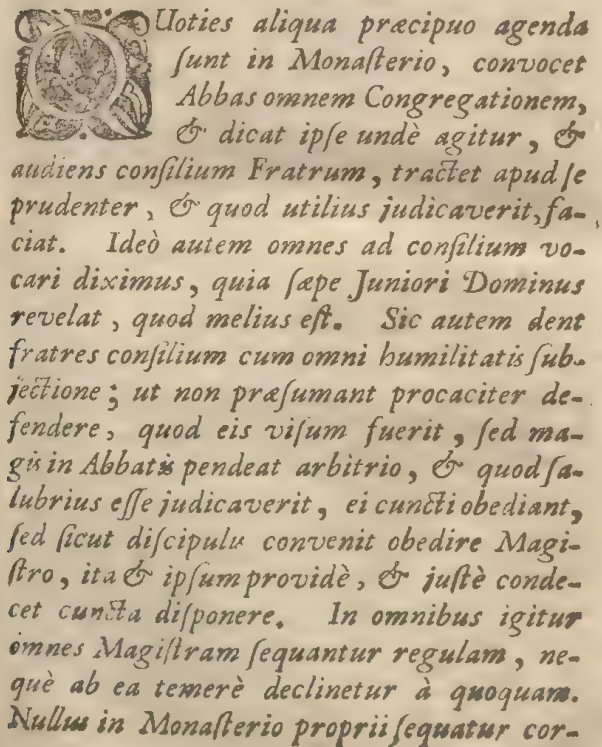 QUoties aliqua præcipuo agenda
ſunt in Monaſterio, convocet
Abbas omnem Congregationem,
& dicat ipſe undè agitur, &
audiens conſilium Fratrum, tractet apud ſe
prudenter, & quod utilius judicaverit, fa-
ciat. Ideò autem omnes ad conſilium vo-
cari diximus, quia ſæpe Juniori Dominus
revelat, quod melius eſt. Sic autem dent
fratres conſilium cum omni humilitatis ſub-
jectione; ut non præſumant procaciter de-
fendere, quod eis viſum fuerit, ſed ma-
gis in Abbatis pendeat arbitrio, & quod ſa-
lubrius eſſe judicaverit, ei cuncti obediant,
ſed ſicut diſcipulis convenit obedire Magi-
ſtro, ita & ipſum providè, & juſtè conde-
cet cuncta diſponere. In omnibus igitur
omnes Magiſtram ſequantur regulam, ne-
què ab ea temerè declinetur à quoquam.
Nullus in Monaſterio proprii ſequatur cor-